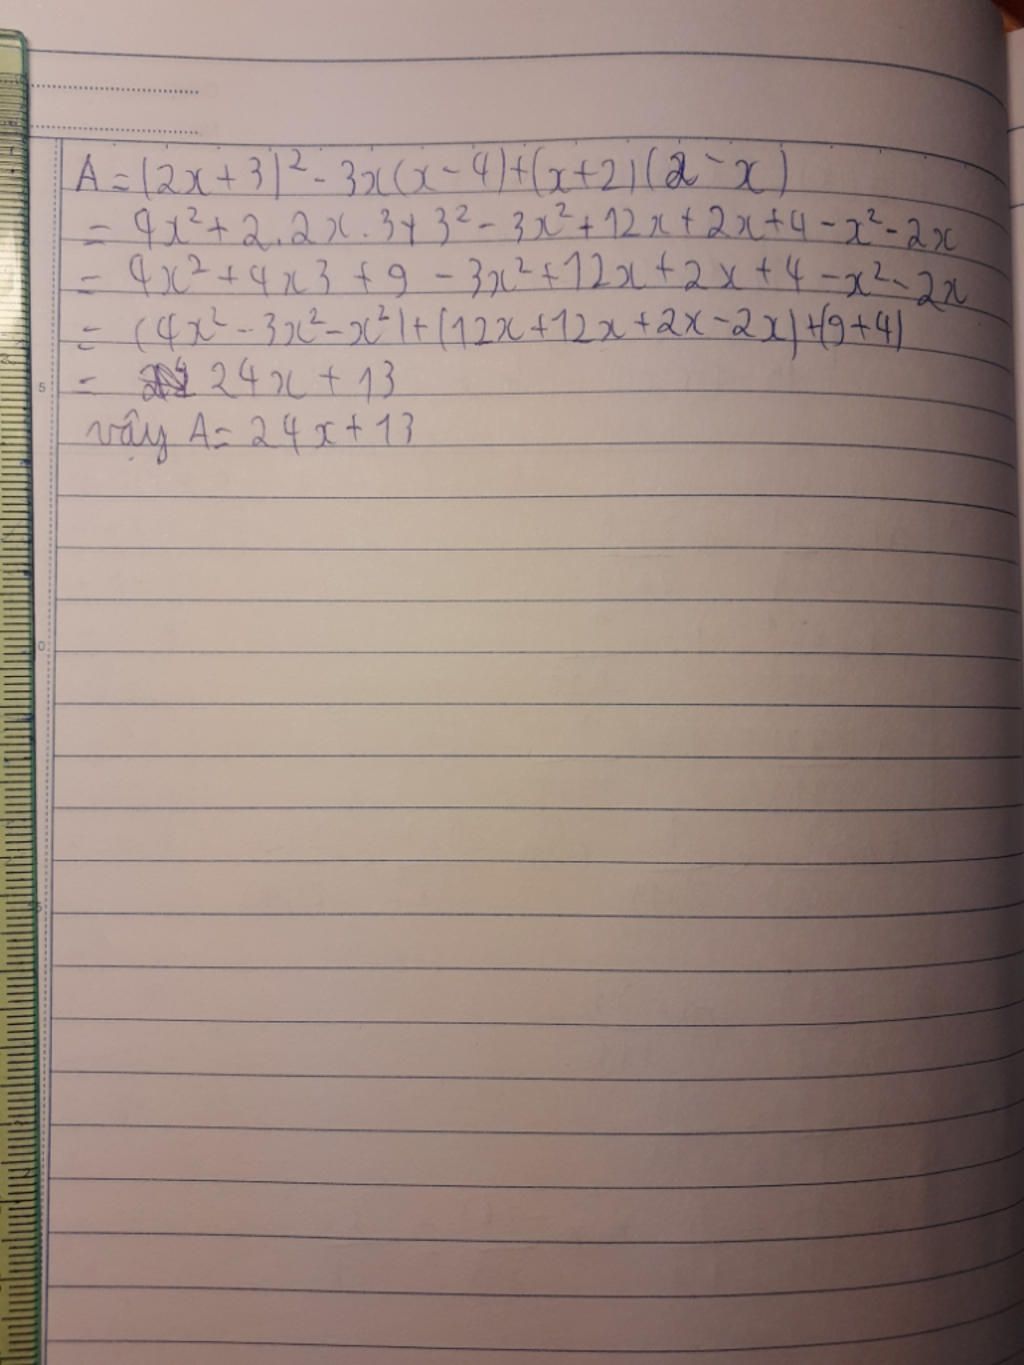 A = (2x + 3)² - 3x(x - 4) + (x + 2)(2 - x)
= 4x² + 2.2x.3 + 3² - 3x² + 12x + 2x + 4 - x² - 2x
= 4x² + 4x3 + 9 - 3x² + 12x + 2x + 4 - x² - 2x
= (4x² - 3x² - x²) + (12x + 12x + 2x - 2x) + (9 + 4)
= 24x + 13
vậy A = 24x + 13